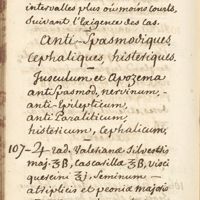 intervalles plus ou moins courts,
Suivant l'Exigence des Cas.
Anti-Spasmodiques,
Cephaliques, histeriques.
Jusculum et Apozema
antispasmod, nervinum,
anti-Epilepticum,
anti Paraliticum,
histericum, Cephalicum,
107-♃ rad. Valerianæ Silvestris
maj. ʒß, Cascarillæ ʒß, visci
quercini ʒj. Seminum
atriplicis et peoniæ majoris